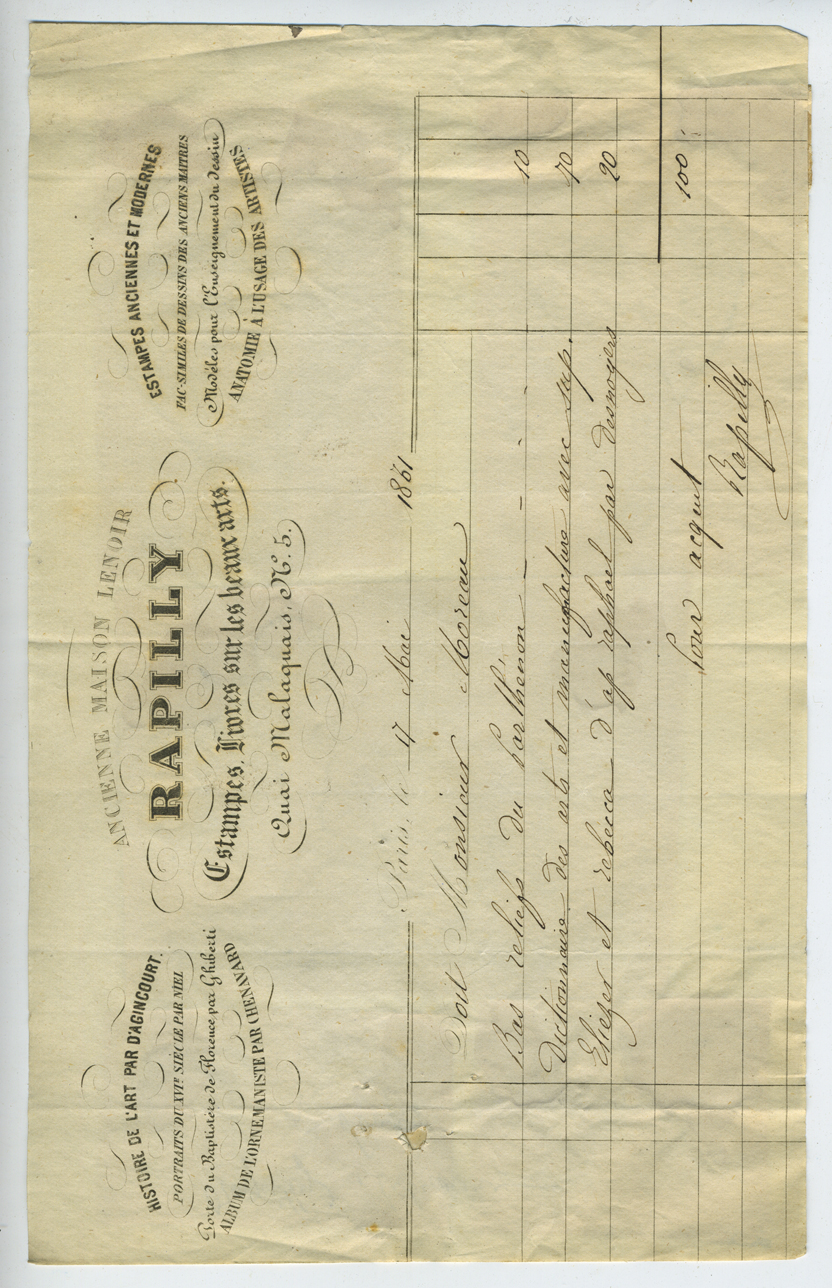 HISTOIRE DE L'ART PAR D'AGINCOURT.
PORTRAITS DU XVIe SIÈCLE PAR NIEL
Porte du Baptistère de Florence par Ghiberti
ALBUM DE L'ORNEMANISTE PAR CHENAVARD
ANCIENNE MAISON LENOIR
RAPILLY
Estampes, Livres sur les beaux arts.
Quai Malaquais, N. 5.
ESTAMPES ANCIENNES ET MODERNES
FAC-SIMILES DE DESSINS DES ANCIENS MAITRES
Modèles pour l'Enseignement du dessin
ANATOMIE À L'USAGE DES ARTISTES
Paris, le 17 Mai 1861
Doit Monsieur Moreau
Bas reliefs du Parthénon - - - 10
Dictionnaire des arts et manufacture avec sup. 70
Eliezer et rebecca d'ap raphael par desnoyers 20
100
Pour acquit
Rapilly